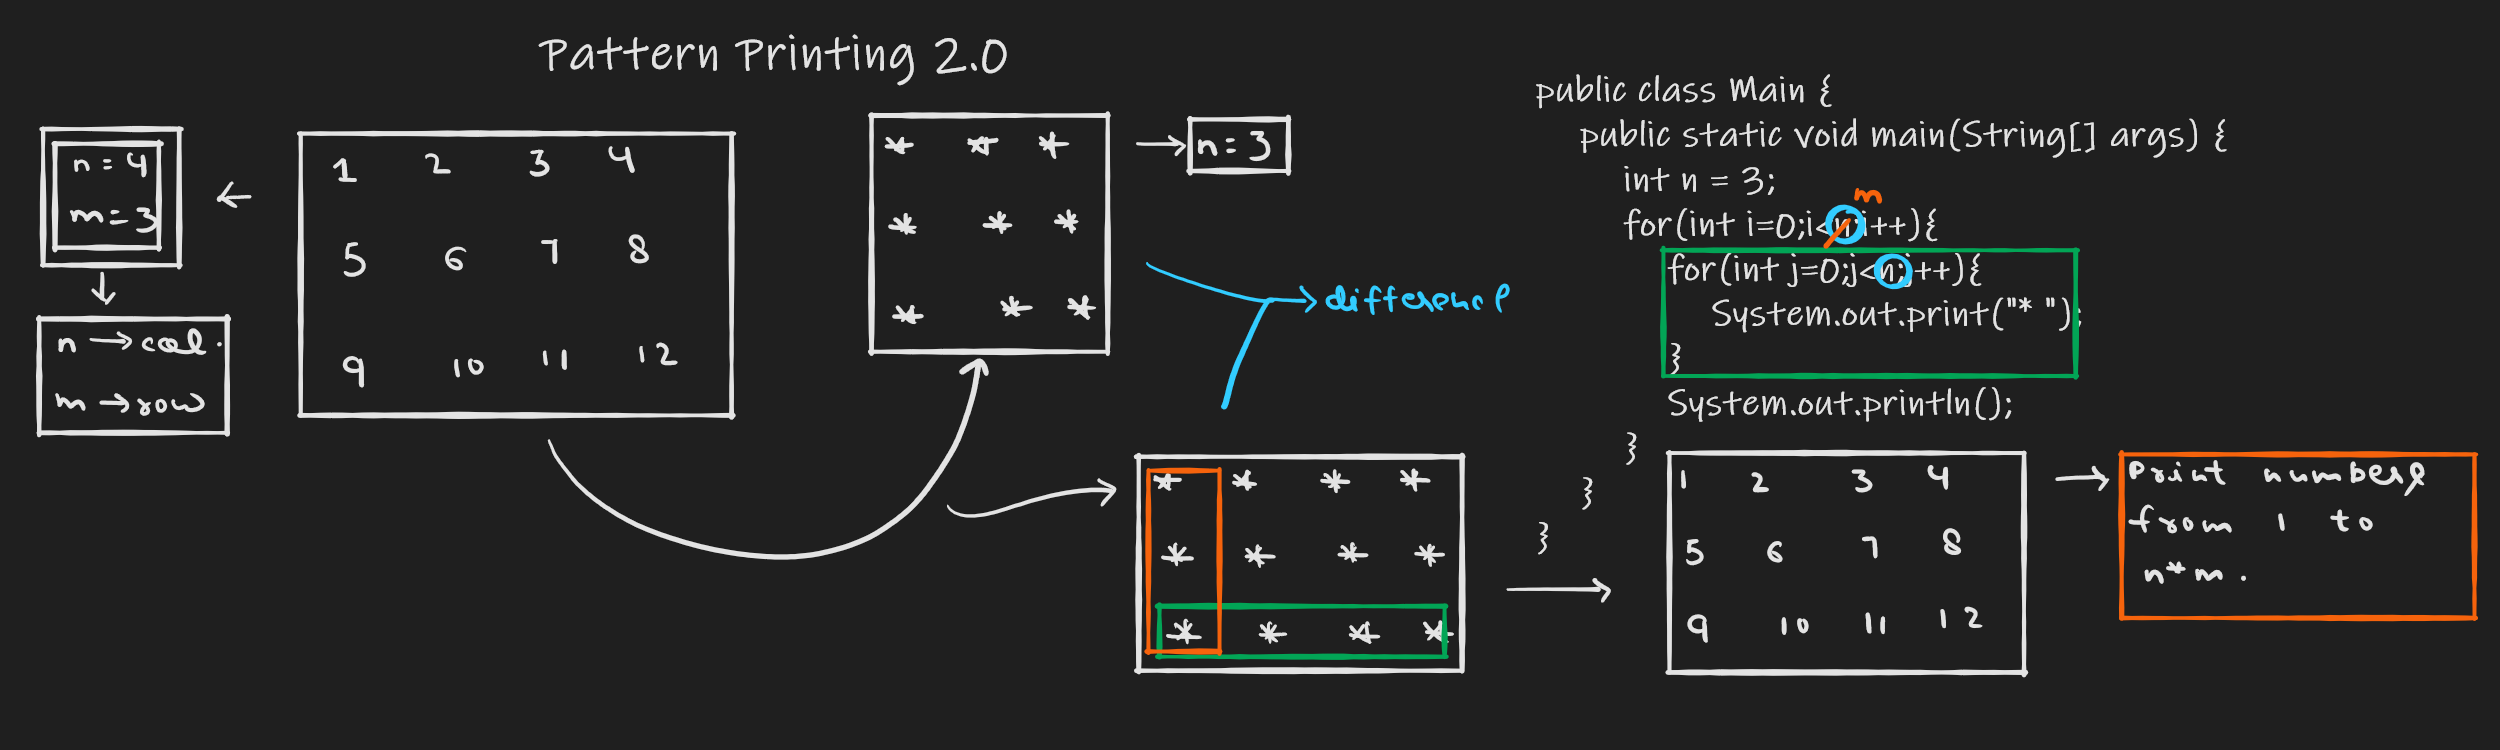 Pattern Printing 2.0
n = 4
m = 3
n → col.
m → row
1 2 3 4
5 6 7 8
9 10 11 12
* * *
* * *
* * *
n = 3
difference
public class Main {
public static void main(String[] args) {
int n = 3;
m
for(int i=0;i<n;i++){
for(int j=0;j<n;j++){
System.out.print("* ");
}
System.out.println();
}
}
}
* * * *
* * * *
* * * *
1 2 3 4
5 6 7 8
9 10 11 12
Print number
from 1 to
n*m.